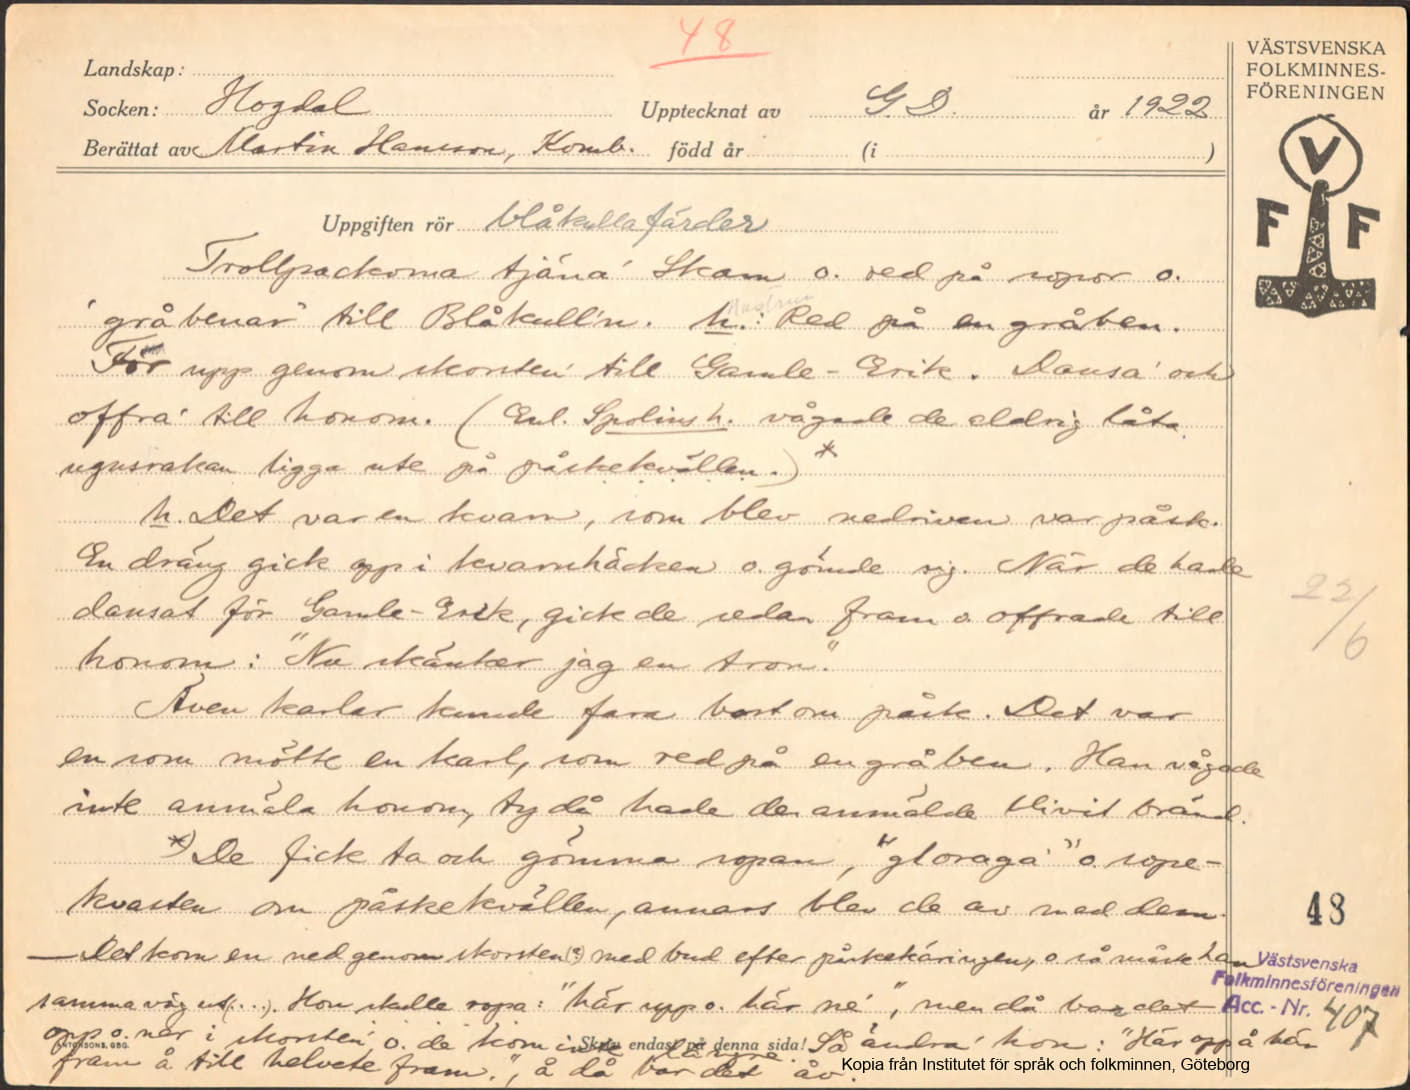 48
VÄSTSVENSKA
FOLKMINNES-
FÖRENINGEN
V
F F
Landskap:
Socken: Hogdal Upptecknat av G. D. år 1922
Berättat av Martin Hansson, Komb. född år (i )
Uppgiften rör blåkullafärder
Trollpackorna tjäna' Skam o. red på sopor o.
'gråbenar' till Blåkull'n. h.: Red på en gråben.
För upp genom skorsten' till Gamle-Erik. Dansa' och
offra' till honom. (Enl. Spolins h. vågade de aldrig låta
ugnsrakan ligga ute på påskekvällen.) *
h. Det var en kvarn, som blev nedriven var påsk.
En dräng gick opp i kvarnhäcken o. gömde sig. När de hade
dansat för Gamle-Erik, gick de sedan fram o. offrade till
honom: "Nu skänker jag en tron".
Även karlar kunde fara bort om påsk. Det var
en som mötte en karl, som red på en gråben. Han vågade
inte anmäla honom, ty då hade den anmälde blivit bränd.
*) De fick ta och gömma sopan, "gloraga'" o. sope-
kvasten om påskekvällen, annars blev de av med dem.
— Det kom en ned genom skorsten (?) med bud efter påskekäringen, o. så måste han
samma väg ut (...). Hon skulle ropa: "här upp o. här ne'", men då bar det
opp o. ner i skorsten' o. de kom inte längre. Så ändra' hon: "Här opp å här
fram å till helvete fram.", å då bar det åv.
ANTONSONS, GBG.
Skriv endast på denna sida!
22/6
48
Västsvenska
Folkminnesföreningen
Acc. - Nr. 407
Kopia från Institutet för språk och folkminnen, Göteborg